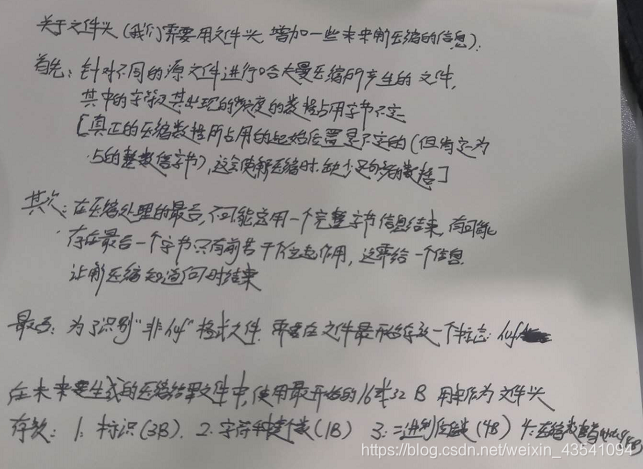 关于文件头（我们需要用文件头，增加一些未来解压缩的信息）：
首先：针对不同的源文件进行哈夫曼压缩所产生的文件，
其中的字符及其出现的频度的数据占用字节不定
[真正的压缩数据所占用的起始位置是不定的（但肯定为
5的整数倍字节），这会使解压缩时缺少足够的数据]
其次：在压缩处理的最后，不可能总用一个完整字节信息结束，有可能
存在最后一个字节只有前若干位起作用，这需给一个信息
让解压缩知道何时结束
最后：为了识别"非 格式文件，需要在文件最开始存放一个标志：
在未来要生成的压缩结果文件中，使用最开始的16或32 B 用作为文件头
存放：1：标识（3B）．2：字符种类个数（1B） 3：二进制位数（4B） 4：
https://blog.csdn.net/weixin_43541094